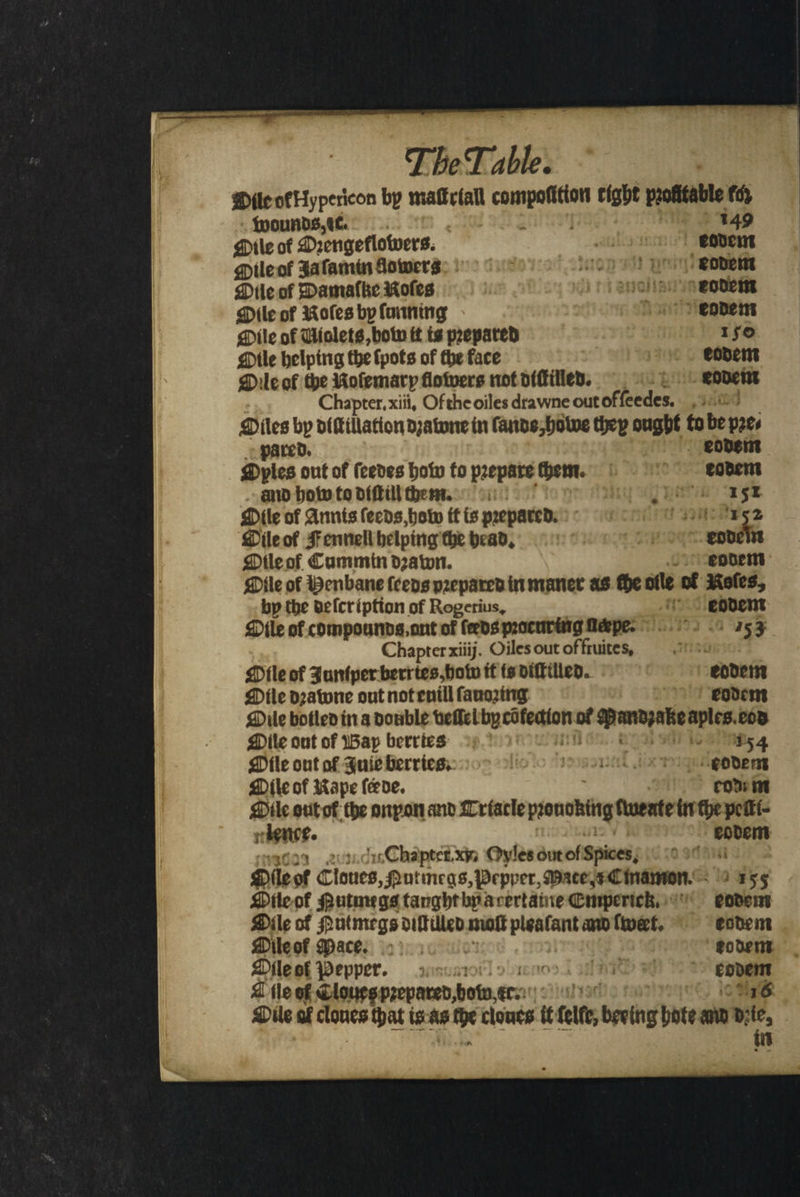 The Table.
Oile of Hypericon by mastriall composition right profitable for
wounds,&c. 149
Oile of Orengeflowers. eodem
Oile of Jasamin flowers eodem
Oile of Damaske Roses eodem
Oile of Roses by sunning eodem
Oile of Violets,how it is prepared 150
Oile helping the spots of the face eodem
Oile of the Rosemary flowers not distilled. eodem
Chapter.xiii. Of the oiles drawne out of seedes.
Oiles by distillation drawne in sands,howe they ought to be pre-
pared. eodem
Oyles out of seedes how to prepare them. eodem
and how to distill them. 151
Oile of Annis seeds,how it is prepared. 152
Oile of Fennell helping the head. eodem
Oile of Cummin drawn. eodem
Oile of Henbane seeds prepared in maner as the oile of Roses,
by the description of Rogerius. eodem
Oile of compounds,out of seeds procuring sleepe. 153
Chapter xiiij. Oiles out of fruites,
Oile of Juniper berries,how it is distilled. eodem
Oile drawne out not euill sauoring eodem
Oile boiled in a double vessel by cofection of Mandrake aples.eod
Oile out of Bay berries 154
Oile out of Juie berries. eodem
Oile of Rape seede. eodem
Oile out of the onyon and Triacle prouoking sweate in the pesti-
lence. eodem
Chapter.xv. Oyles out of Spices,
Oile of Cloues,Nutmegs,Pepper,Mace,&Cinamon. 155
Oile of Nutmegs taught by a certaine Emperick. eodem
Oile of Nutmegs distilled most pleasant and sweet. eodem
Oile of Mace. eodem
Oile of Pepper. eodem
Oile of Cloues prepared,how,&c. 16
Oile of cloues that is as the cloues it selfe, beeing hote and drie,
in